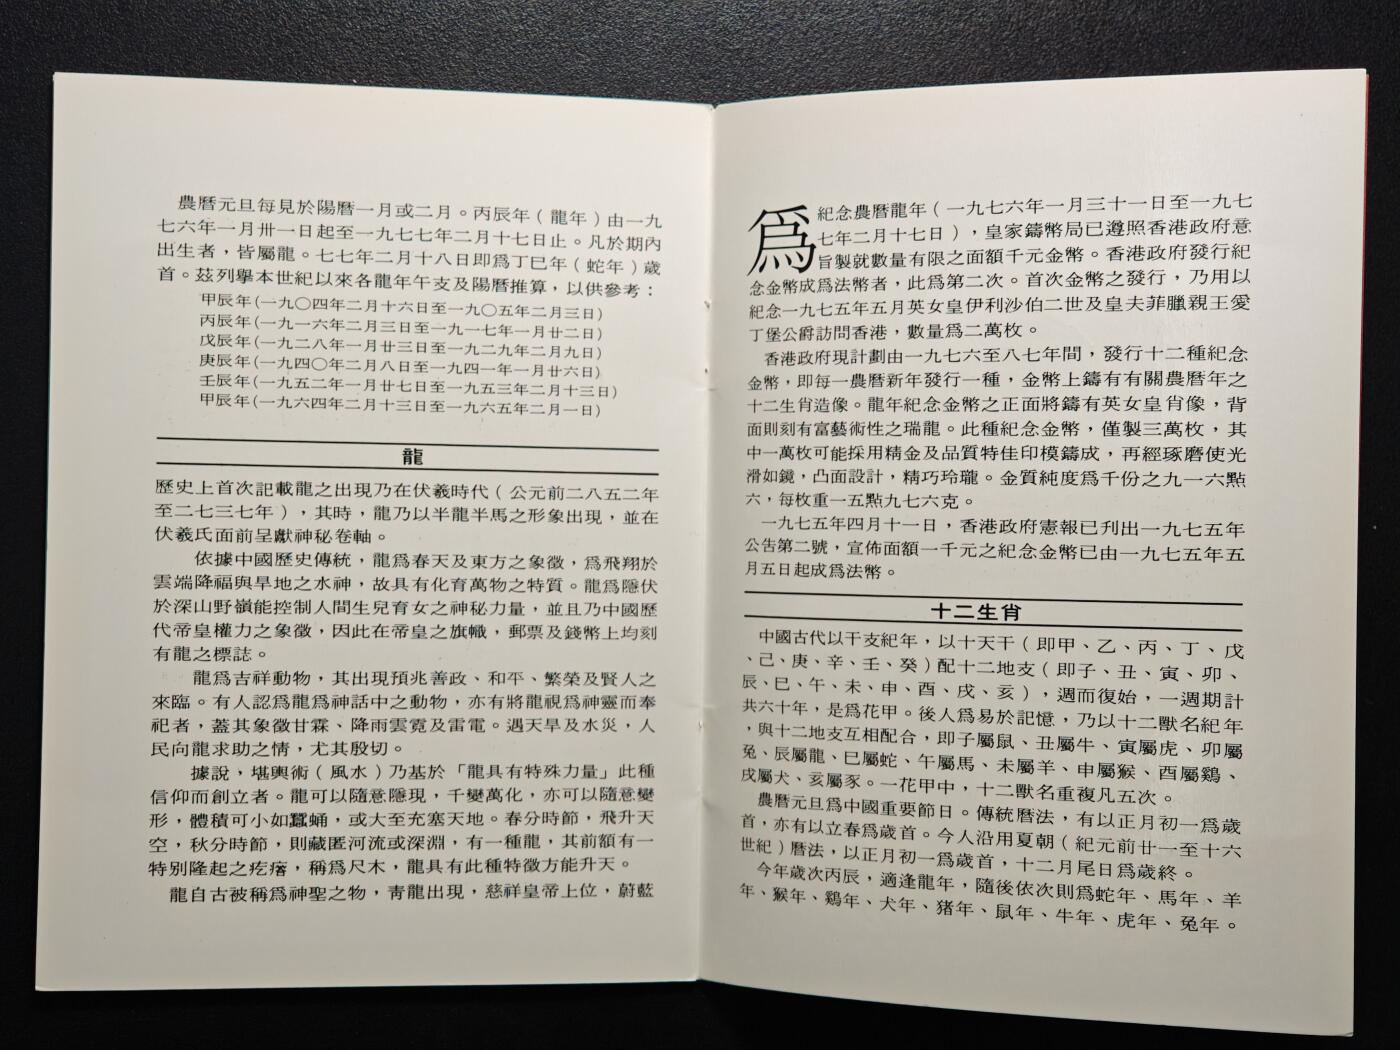 農曆元旦每見於陽曆一月或二月。丙辰年（龍年）由一九
七六年一月卅一日起至一九七七年二月十七日止。凡於期內
出生者，皆屬龍。七七年二月十八日即爲丁巳年（蛇年）歲
首。茲列擧本世紀以來各龍年午支及陽曆推算，以供參考：
甲辰年(一九〇四年二月十六日至一九〇五年二月三日)
丙辰年(一九一六年二月三日至一九一七年一月廿二日)
戊辰年(一九二八年一月廿三日至一九二九年二月九日)
庚辰年(一九四〇年二月八日至一九四一年一月廿六日)
壬辰年(一九五二年一月廿七日至一九五三年二月十三日)
甲辰年(一九六四年二月十三日至一九六五年二月一日)
龍
歷史上首次記載龍之出現乃在伏羲時代（公元前二八五二年
至二七三七年），其時，龍乃以半龍半馬之形象出現，並在
伏羲氏面前呈獻神秘卷軸。
依據中國歷史傳統，龍爲春天及東方之象徵，爲飛翔於
雲端降福與旱地之水神，故具有化育萬物之特質。龍爲隱伏
於深山野嶺能控制人間生兒育女之神秘力量，並且乃中國歷
代帝皇權力之象徵，因此在帝皇之旗幟，郵票及錢幣上均刻
有龍之標誌。
龍爲吉祥動物，其出現預兆善政、和平、繁榮及賢人之
來臨。有人認爲龍爲神話中之動物，亦有將龍視爲神靈而奉
祀者，蓋其象徵甘霖、降雨雲霓及雷電。遇天旱及水災，人
民向龍求助之情，尤其殷切。
據說，堪輿術（風水）乃基於「龍具有特殊力量」此種
信仰而創立者。龍可以隨意隱現，千變萬化，亦可以隨意變
形，體積可小如蠶蛹，或大至充塞天地。春分時節，飛升天
空，秋分時節，則藏匿河流或深淵，有一種龍，其前額有一
特別隆起之疙瘩，稱爲尺木，龍具有此種特徵方能升天。
龍自古被稱爲神聖之物，靑龍出現，慈祥皇帝上位，蔚藍
爲紀念農曆龍年（一九七六年一月三十一日至一九七
七年二月十七日），皇家鑄幣局已遵照香港政府意
旨製就數量有限之面額千元金幣。香港政府發行紀
念金幣成爲法幣者，此爲第二次。首次金幣之發行，乃用以
紀念一九七五年五月英女皇伊利沙伯二世及皇夫菲臘親王愛
丁堡公爵訪問香港，數量爲二萬枚。
香港政府現計劃由一九七六至八七年間，發行十二種紀念
金幣，即每一農曆新年發行一種，金幣上鑄有有關農曆年之
十二生肖造像。龍年紀念金幣之正面將鑄有英女皇肖像，背
面則刻有富藝術性之瑞龍。此種紀念金幣，僅製三萬枚，其
中一萬枚可能採用精金及品質特佳印模鑄成，再經琢磨使光
滑如鏡，凸面設計，精巧玲瓏。金質純度爲千份之九一六點
六，每枚重一五點九七六克。
一九七五年四月十一日，香港政府憲報已刋出一九七五年
公告第二號，宣佈面額一千元之紀念金幣已由一九七五年五
月五日起成爲法幣。
十二生肖
中國古代以干支紀年，以十天干（即甲、乙、丙、丁、戊
、己、庚、辛、壬、癸）配十二地支（即子、丑、寅、卯、
辰、巳、午、未、申、酉、戌、亥），週而復始，一週期計
共六十年，是爲花甲。後人爲易於記憶，乃以十二獸名紀年
，與十二地支互相配合，即子屬鼠、丑屬牛、寅屬虎、卯屬
兔、辰屬龍、巳屬蛇、午屬馬、未屬羊、申屬猴、酉屬鷄、
戌屬犬、亥屬豕。一花甲中，十二獸名重複凡五次。
農曆元旦爲中國重要節日。傳統曆法，有以正月初一爲歲
首，亦有以立春爲歲首。今人沿用夏朝（紀元前廿一至十六
世紀）曆法，以正月初一爲歲首，十二月尾日爲歲終。
今年歲次丙辰，適逢龍年，隨後依次則爲蛇年、馬年、羊
年、猴年、鷄年、犬年、猪年、鼠年、牛年、虎年、兔年。